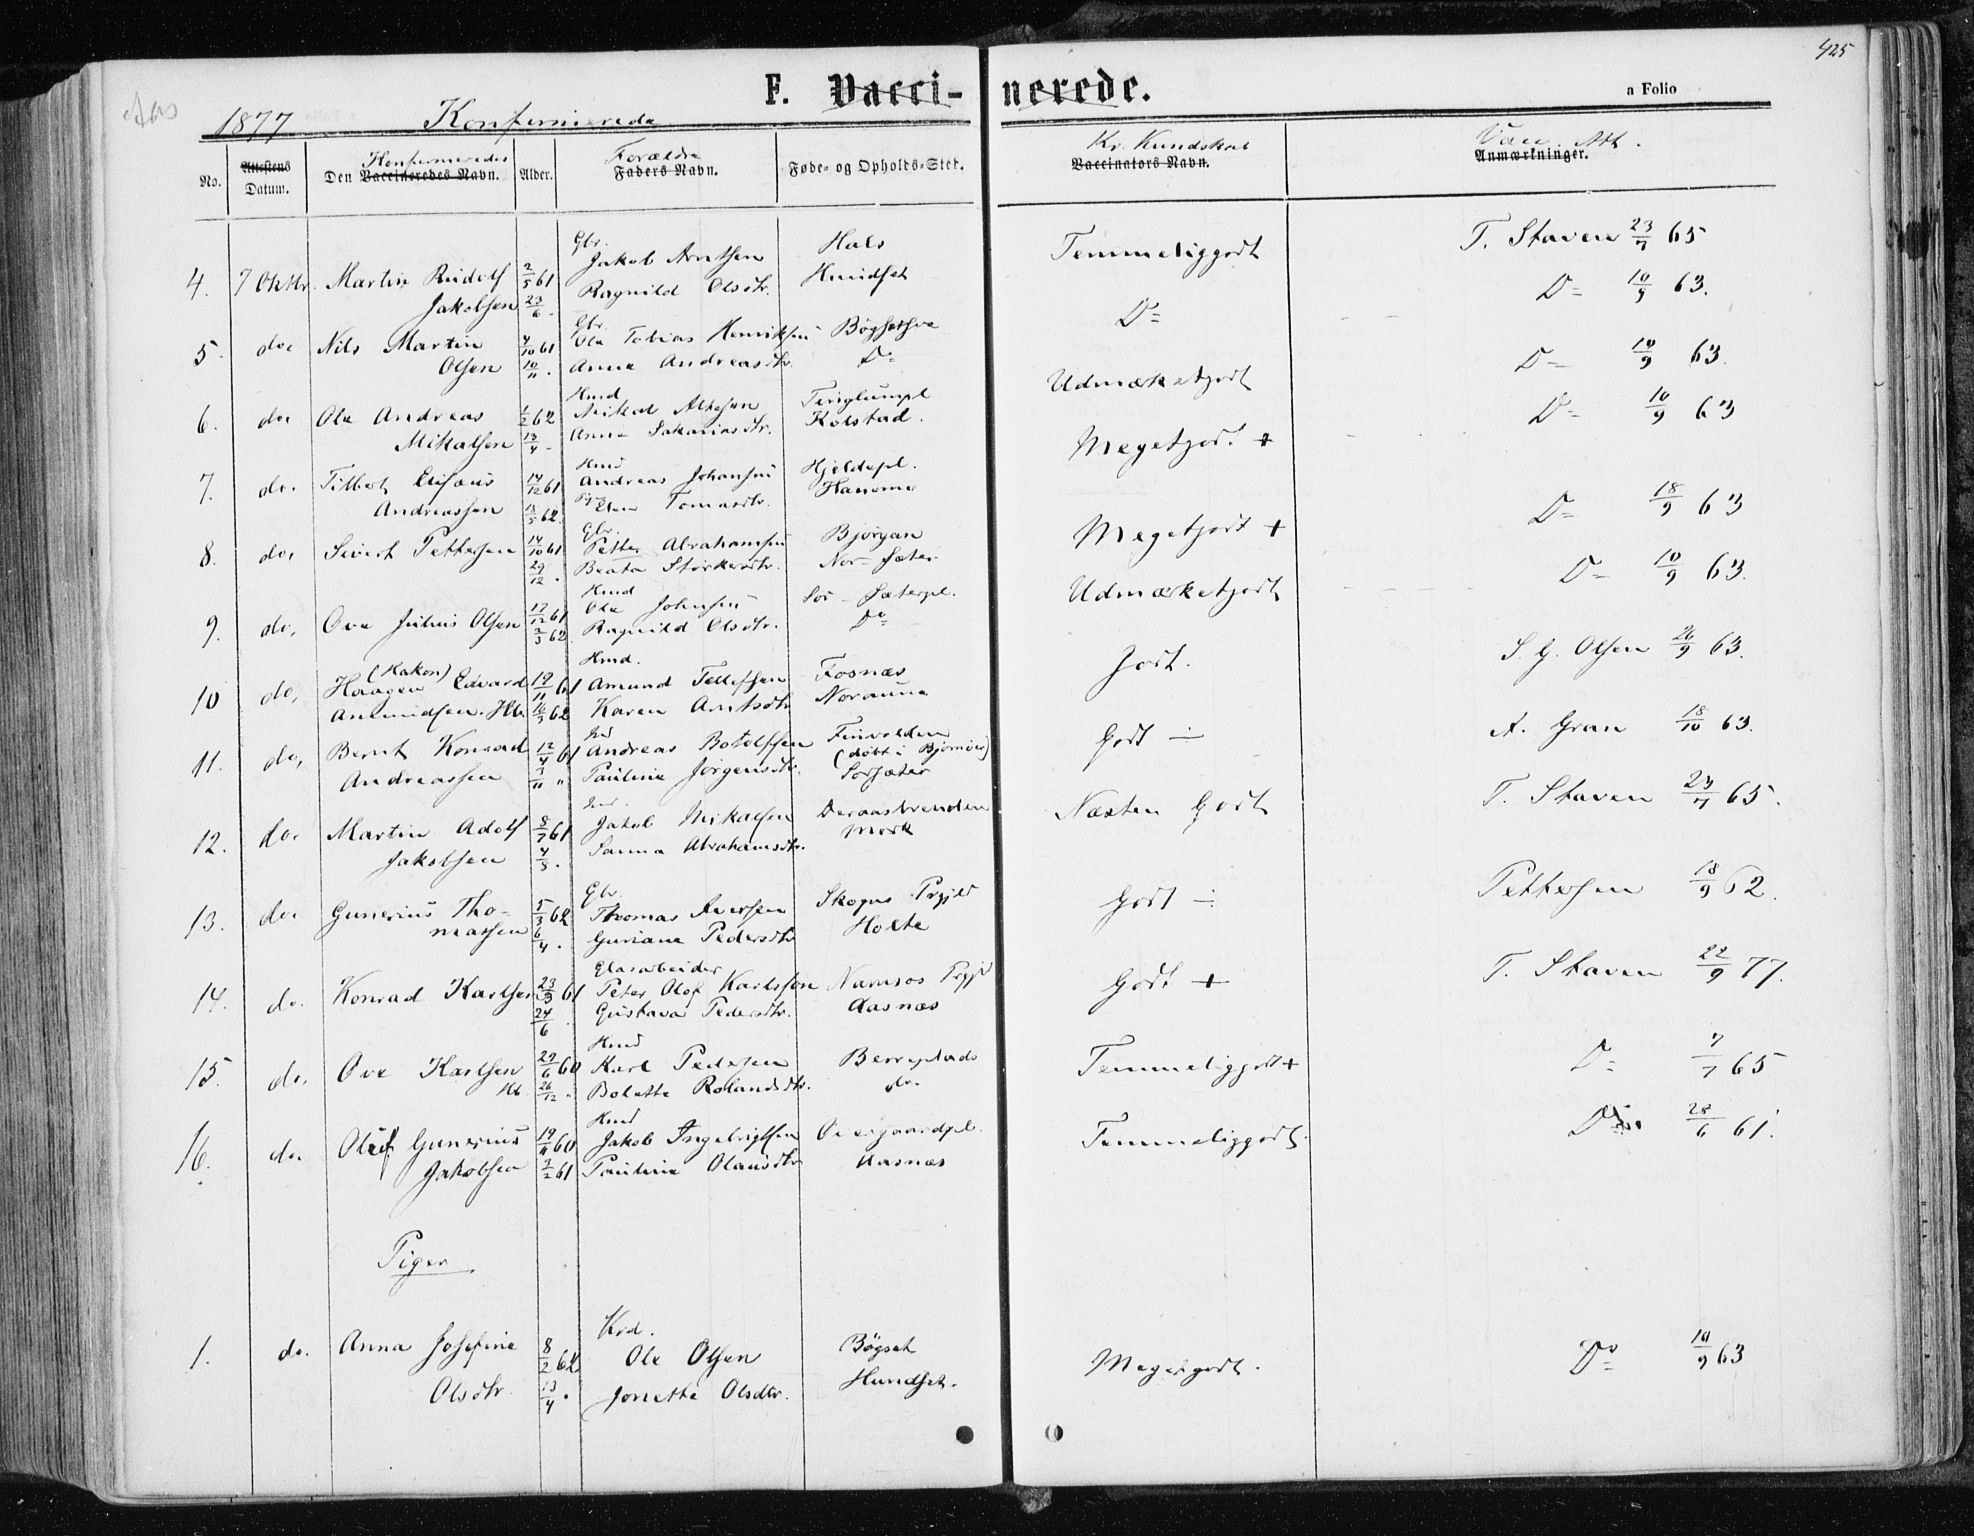 425
F. Vaccinerede.
a Folio
Aas
1877 Konfirmerede
No. Attestens Datum. Konfirmeredes Den Vaccineredes Navn. Alder. Forældre Faders Navn. Føde- og Opholds-Sted. Kr. Kundskab Vaccinators Navn. Vacc. Att. Anmærkninger.
Gbr. Hals
4. 7 Oktbr. Martin Rudolf 2/5 61 Jakob Arntsen Hundset Temmeliggodt T. Staven 23/7 65
Jakobsen 23/6 . Ragnild Olsdtr.
Gbr.
5. do. Nils Martin 4/10 61 Ole Tobias Henriksen Bøgset D= D= 10/9 63.
Olsen 10/11 . Anna Andreasdtr. D=
Hmd
6. do. Ole Andreas 1/2 62 Mikal Udmærketgodt D= 10/9 63.
Mikalsen 13/4 . Anna Sakariasdtr. Kolstad.
Hmd
7. do. Tilbert Elisæus 14/12 61 Andreas Johansen Hjeldepl. Megetgodt + D= 10/9 63
Andreassen 13/5 62. Pige Elen Tomasdtr.
Gbr.
8. do. Sivert Pettersen 14/10 61 Petter Abrahamsen Bjørgan Megetgodt + D= 18/9 63
29/12 . Beata Størkersdtr. Nor-Sæter
Hmd
9. do, Ove Julius Olsen 17/12 61 Ole Johnsen Sør-Sæterpl. Udmærketgodt D= 10/9 63.
2/3 62. Ragnild Olsdtr. Do
Hmd.
10 do, (Hakon) Haagen Edvard 19/11 61 Amund Tellefsen Fosnæs Godt. S. G. Olsen 26/9 63.
Amundsen. Hb. 16/3 62 Karen Arntsdtr Noraune
11. do, Bernt Konrad 12/4 61 Andreas Botolfsen Finvolden Godt ÷ A. Gran 18/10 63.
Andreassen 3/11 " Pauline Jørgensdtr. (døbt i Bjørnør) Sørsæter
12. do. Martin Adolf 8/7 61 Jakob Mikalsen Deraasbrenden Næsten Godt T. Staven 23/7 65.
Jakobsen 4/5. Sanna Abrahamsdtr. Mork
Gbr.
13. do. Gunerius Tho- 5/3 62 Thomas Iversen Skogns Prgjld Godt ÷ Pettersen 18/9 62.
massen 6/4. Guriane Pedersdtr Holte
Glasarbeider
14. do. Konrad Karlsen 23/3 61 Peter Olof Karlsson Namsos Prgjd Godt + T. Staven 22/9 77.
24/6 . Gustava Pedersdtr. Aasnæs
Hmd
15. do. Ove Karlsen 29/6 60 Karl Pedersen Berreplads Temmeliggodt + D= 7/7 65
Hb 26/12 . Bolette Rolandsdtr. do.
Hmd
16. do. Oluf Gunerius 19/11 60 Jakob Ingebrigtsen Overgaardpl. Temmeliggodt. Do 28/6 61.
Jakobsen 3/2 61 Pauline Olausdtr Aasnæs
Piger
Krd.
1. do. Anna Josefine 8/2 62 Ole Olsen Bøgset Megetgodt. Do 10/9 63
Olsdtr. 13/4 . Jonetta Olsdtr. Hundset.